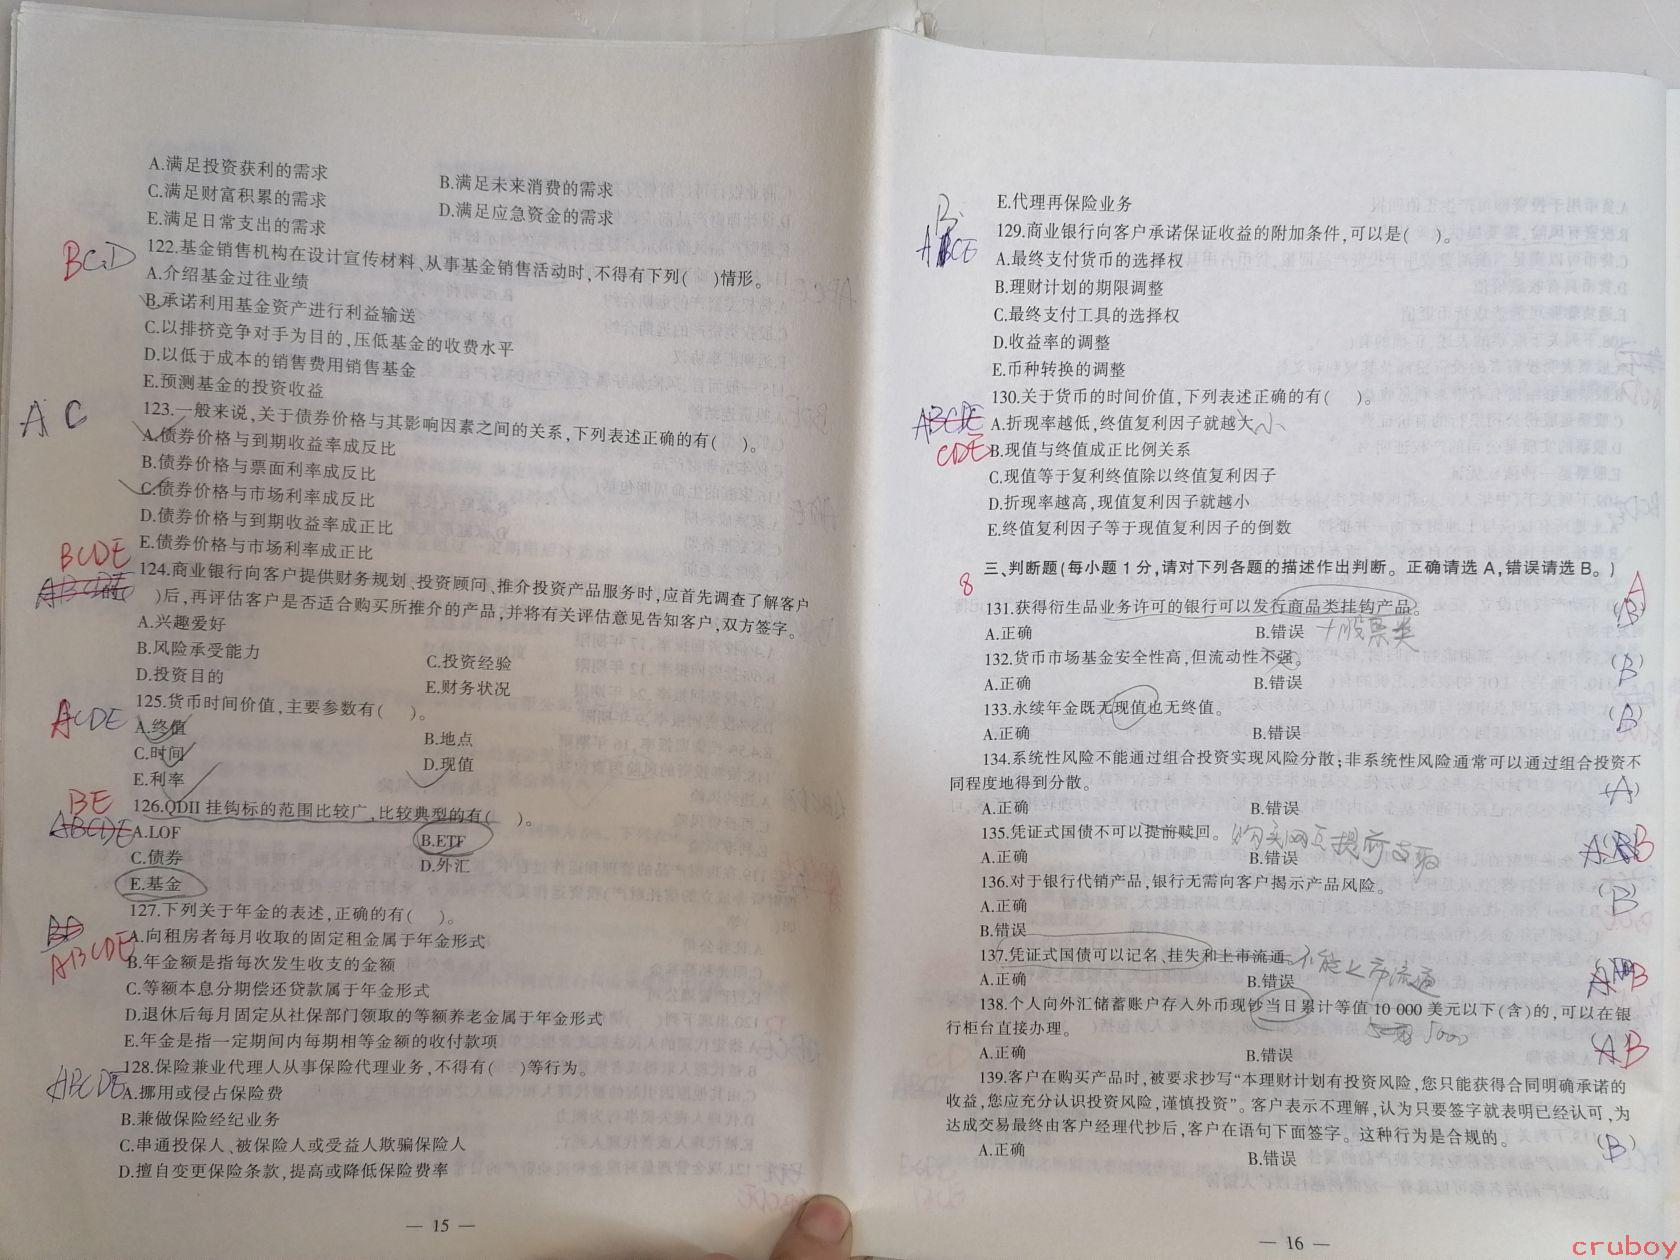 A.满足投资获利的需求
B.满足未来消费的需求
C.满足财富积累的需求
D.满足应急资金的需求
E.满足日常支出的需求
BCD
122.基金销售机构在设计宣传材料、从事基金销售活动时,不得有下列(　)情形。
A.介绍基金过往业绩
B.承诺利用基金资产进行利益输送
C.以排挤竞争对手为目的,压低基金的收费水平
D.以低于成本的销售费用销售基金
E.预测基金的投资收益
AC
123.一般来说,关于债券价格与其影响因素之间的关系,下列表述正确的有(　)。
A.债券价格与到期收益率成反比
B.债券价格与票面利率成反比
C.债券价格与市场利率成反比
D.债券价格与到期收益率成正比
E.债券价格与市场利率成正比
BCDE
ABCDE
124.商业银行向客户提供财务规划、投资顾问、推介投资产品服务时,应首先调查了解客户
(　)后,再评估客户是否适合购买所推介的产品,并将有关评估意见告知客户,双方签字。
A.兴趣爱好
B.风险承受能力
C.投资经验
D.投资目的
E.财务状况
ACDE
125.货币时间价值,主要参数有(　)。
A.终值
B.地点
C.时间
D.现值
E.利率
BE
ABCDE
126.QDII 挂钩标的范围比较广,比较典型的有(　)。
A.LOF
B.ETF
C.债券
D.外汇
E.基金
127.下列关于年金的表述,正确的有(　)。
ABCDE
A.向租房者每月收取的固定租金属于年金形式
B.年金额是指每次发生收支的金额
C.等额本息分期偿还贷款属于年金形式
D.退休后每月固定从社保部门领取的等额养老金属于年金形式
E.年金是指一定期间内每期相等金额的收付款项
ABCDE
128.保险兼业代理人从事保险代理业务,不得有(　)等行为。
A.挪用或侵占保险费
B.兼做保险经纪业务
C.串通投保人、被保险人或受益人欺骗保险人
D.擅自变更保险条款,提高或降低保险费率
— 15 —
E.代理再保险业务
B
ABCE
129.商业银行向客户承诺保证收益的附加条件,可以是(　)。
A.最终支付货币的选择权
B.理财计划的期限调整
C.最终支付工具的选择权
D.收益率的调整
E.币种转换的调整
130.关于货币的时间价值,下列表述正确的有(　)。
ABCDE
CDE
A.折现率越低,终值复利因子就越大 小
B.现值与终值成正比例关系
C.现值等于复利终值除以终值复利因子
D.折现率越高,现值复利因子就越小
E.终值复利因子等于现值复利因子的倒数
8
三、判断题(每小题1分,请对下列各题的描述作出判断。正确请选A,错误请选B。)
131.获得衍生品业务许可的银行可以发行商品类挂钩产品。
A
(B)
A.正确
B.错误 +股票类
132.货币市场基金安全性高,但流动性不强。
(B)
A.正确
B.错误
133.永续年金既无现值也无终值。
(B)
A.正确
B.错误
134.系统性风险不能通过组合投资实现风险分散;非系统性风险通常可以通过组合投资不
同程度地得到分散。
(A)
A.正确
B.错误
135.凭证式国债不可以提前赎回。 购买网点提前支取
B
A.正确
B.错误
136.对于银行代销产品,银行无需向客户揭示产品风险。
(B)
A.正确
B.错误
137.凭证式国债可以记名、挂失和上市流通。 不能上市流通
B
A.正确
B.错误
138.个人向外汇储蓄账户存入外币现钞当日累计等值 10 000 美元以下(含)的,可以在银
行柜台直接办理。
5000
AB
A.正确
B.错误
139.客户在购买产品时,被要求抄写“本理财计划有投资风险,您只能获得合同明确承诺的
收益,您应充分认识投资风险,谨慎投资”。客户表示不理解,认为只要签字就表明已经认可,为
达成交易最终由客户经理代抄后,客户在语句下面签字。这种行为是合规的。
(B)
A.正确
B.错误
— 16 —
cruboy